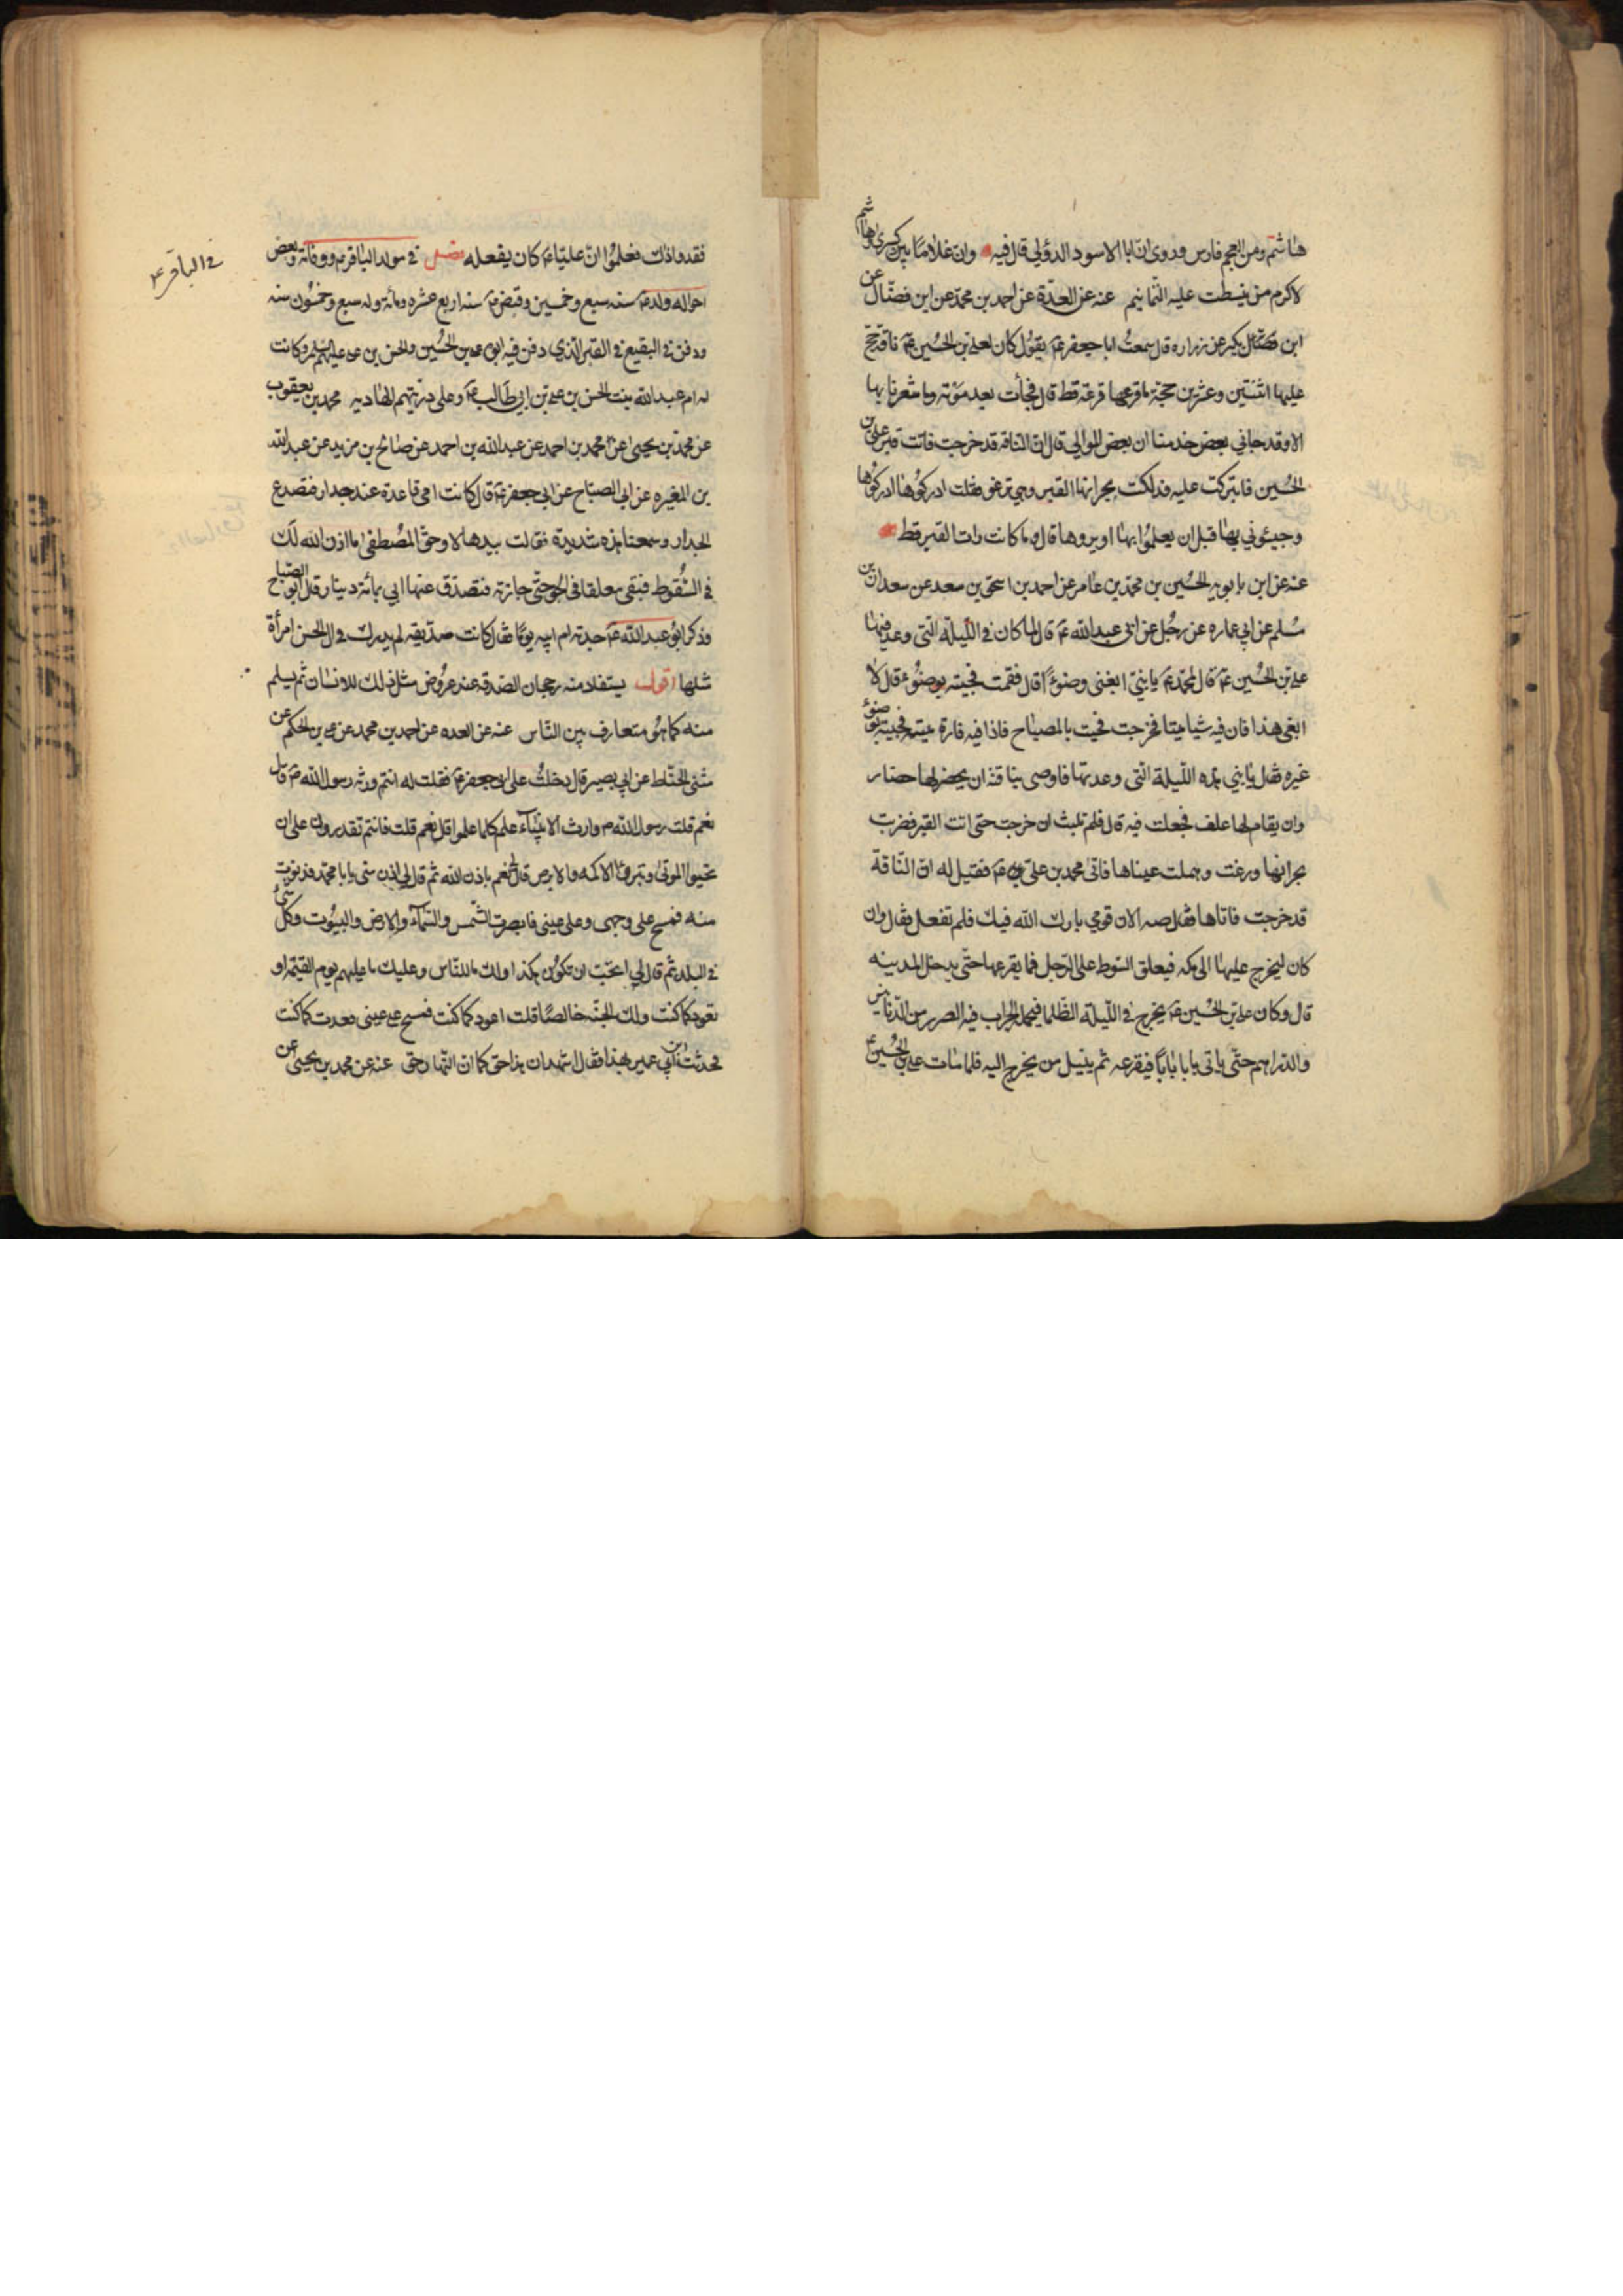 هاشم ومن العجم فارس وروى ان ابا الاسود الدؤلي قال فيه وان غلاما بين كسرى وهاشم
لاكرم من نيطت عليه التمائم عنه عن العدّة عن احمد بن محمّد عن ابن فضّال عن
ابن بكير عن زراره قال سمعتُ ابا جعفر ع يقول كان لعلي بن الحُسين ع ناقة حج
عليها اثنتين وعشرين حجة ما قرعها قرعة قط قال فجأت بعد موته وما شعرنا بها
الا وقد جاني بعض خدمنا ان بعض الموالي قال ان الناقه قد خرجت فاتت قبر علي بن
الحُسين فابتركت عليه فدلكت بجرانها القبر وهي ترغو فقلت ادركوها ادركوها
وجيئوني بها قبل ان يعلموا بها او يروها قال وما كانت رات القبر قط
عنه عن ابن بابويه الحُسين بن محمّد بن عامر عن احمد بن اسحق بن سعد عن سعدان بن
مسلم عن ابي عماره عن رجُل عن ابي عبد الله ع قال لما كان في اللّيلة الّتى وعد فيها
علي بن الحُسين ع قال لمحمّد ع يا بنيّ ابغنى وضوءً قال فقمت فجيته بوضوُء قال لا
ابغى هذا فان فيه شيا ميتا فخرجت فجيت بالمصباح فاذا فيه فارة ميته فجيته بوضوء
غيره فقال يا بني هذه اللّيلة الّتى وعدتها فاوصى بناقته ان يحضر لها حضار
وان يقام لها علف فجعلت فيه قال فلم تلبث ان خرجت حتى اتت القبر فضربت
بجرانها ورغت وهملت عيناها فاتى محمد بن علىّ ع فقيل له ان النّاقة
قد خرجت فاتاها فقال صه الان قومي بارك الله فيك فلم تفعل فقال وان
كان ليخرج عليها الى مكه فيعلق السّوط على الرّحل فما يقرعها حتّى يدخل المدينه
قال وكان علي بن الحُسين ع يخرج في اللّيلة الظّلما فيحمل الجراب فيه الصرر من الدّنانير
والدّراهم حتّى ياتى بابا بابًا فيقرعه ثم ينيل من يخرج اليه فلما مات علي بن الحُسين ع
في الباقر ع
فقدوا ذلك فعلمُوا انّ عليّا ع كان يفعله فصل في مولد الباقر ع ووفاته وبعض
احواله ولد ع سنه سبع وخمسين وقبض ع سنه اربع عشره ومأة وله سبع وخمسُون سنه
ودفن في البقيع في القبر الّذي دفن فيه ابوه علي بن الحُسين والحسن بن علي عليهم السّلم وكانت
له ام عبد الله بنت الحسن بن علي بن ابي طالب ع وعلى ذريّتهم الهاديه محمد بن يعقوب
عن محمّد بن يحيى عن محمد بن احمد عن عبد الله بن احمد عن صالح بن مزيد عن عبد الله
بن المغيره عن ابي الصبّاح عن ابي جعفر ع قال كانت امي قاعدة عند جدار فتصدع
الجدار وسمعنا هدّة شديدة فقالت بيدها لا وحقّ المُصطفى ما اذن الله لك
في السُّقوط فبقى معلقا فى الجوّ حتّى جازته فتصدّق عنها ابي بمائة دينار وقال ابو الصبّاح
وذكر ابُو عبد الله ع جدته ام ابيه يومًا فقال كانت صدّيقه لم يدرك في ال الحسن امرأة
مثلها اقول يستفاد منه رجحان الصّدقه عند عرُوض مثل ذلك للانسان ثم يسلم
منه كما هُو متعارف بين النّاس عنه عن العده عن احمد بن محمد عن علي بن الحكم عن
مثنى الحنّاط عن ابي بصير قال دخلتُ على ابي جعفر ع فقلت له انتم ورثه رسول الله ص قال
نعم قلت رسول الله ص وارث الانبيآء علم كلما علموا قال نعم قلت فانتم تقدرون على ان
تحيوا الموتى وتبرءُا الاكمه والابرص قال نعم باذن الله ثم قال لي ادن منى يا با محمّد فدنوت
منه فمسح على وجهى وعلى عينى فابصرت الشّمس والسّمآء والارض والبيُوت وكلّ شيءُ
في البلد ثم قال لي اتحبّ ان تكوُن هكذا ولك ما للنّاس وعليك ما عليهم يوم القيمة او
تعود كما كنت ولك الجنّه خالصًا قلت اعود كما كنت فمسح على عينى فعدت كما كنت
فحدثت ابن ابي عمير بهذا فقال اشهد ان هذا حق كما ان النّهار حقّ عنه عن محمد بن يحيى عن